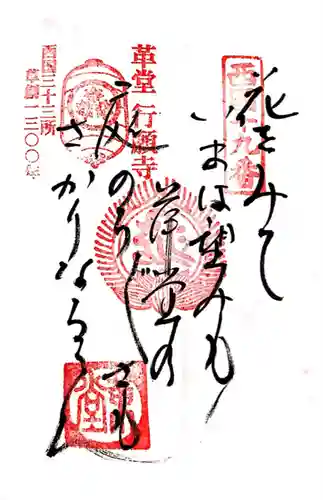 西国十九番
花をみて
いまは望みも
革堂の
庭のちぐさも
さかりなるらん
革堂 行願寺
西国三十三所
草創一三〇〇年
革堂